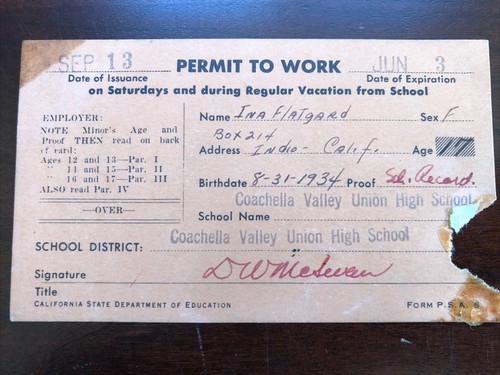 SEP 13 PERMIT TO WORK JUN 3
Date of Issuance Date of Expiration
on Saturdays and during Regular Vacation from School
EMPLOYER:
NOTE Minor's Age and
Proof THEN read on back
of card:
Ages 12 and 13—Par. I
" 14 and 15—Par. II
" 16 and 17—Par. III
ALSO read Par. IV
—OVER—
Name Ina Flatgard Sex F
Box 214
Address Indio - Calif. Age 17
Birthdate 8-31-1934 Proof Sch. Record.
Coachella Valley Union High School
School Name
SCHOOL DISTRICT: Coachella Valley Union High School
Signature D W McSwan
Title
CALIFORNIA STATE DEPARTMENT OF EDUCATION FORM P. S. A. 8